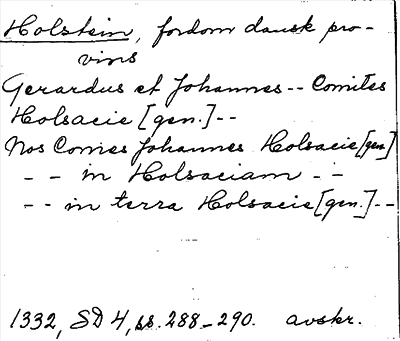 Holstein, fordom dansk pro-
vins
Gerardus et Johannes -- Comites
Holsacie [gen.] --
Nos Comes Johannes Holsacie [gen]
- - in Holsaciam - -
- - in terra Holsacie [gen.] - -
1332, SD 4, ss. 288-290. avskr.